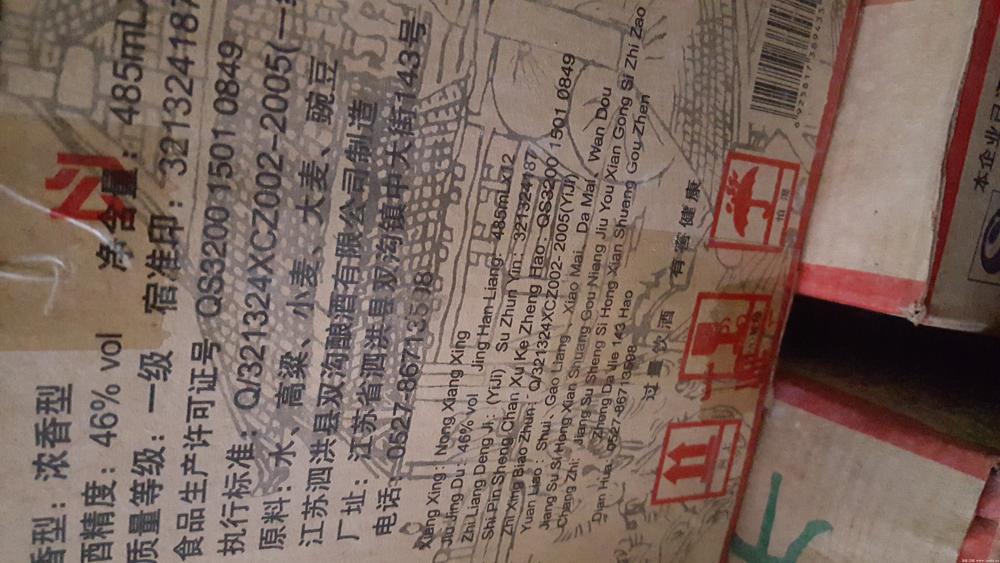 香型：浓香型 净含量：485mL
酒精度：46% vol 宿准印：321324187
质量等级：一级
食品生产许可证号 QS3200 1501 0849
执行标准：Q/321324XCZ002-2005(一
原料：水、高粱、小麦、大麦、豌豆
江苏泗洪县双沟酿酒有限公司制造
厂址：江苏省泗洪县双沟镇中大街143号
电话：0527-86713518
Xiang Xing: Nong Xiang Xing
Jiu Jing Du: 46% vol Jing Han Liang: 485mLx12
Zhi Liang Deng Ji: (YiJi) Su Zhun Yin: 321324187
Shi Pin Sheng Chan Xu Ke Zheng Hao QS3200 1501 0849
Zhi Xing Biao Zhun: Q/321324XCZ002-2005(YiJi)
Yuan Liao: Shui、Gao Liang、Xiao Mai、Da Mai、Wan Dou
Jiang Su Si Hong Xian Shuang Gou Niang Jiu You Xian Gong Si Zhi Zao
Chang Zhi: Jiang Su Sheng Si Hong Xian Shuang Gou Zhen
Zhong Da Jie 143 Hao
Dian Hua: 0527-86713598
过量饮酒 有害健康
怕湿
本企业